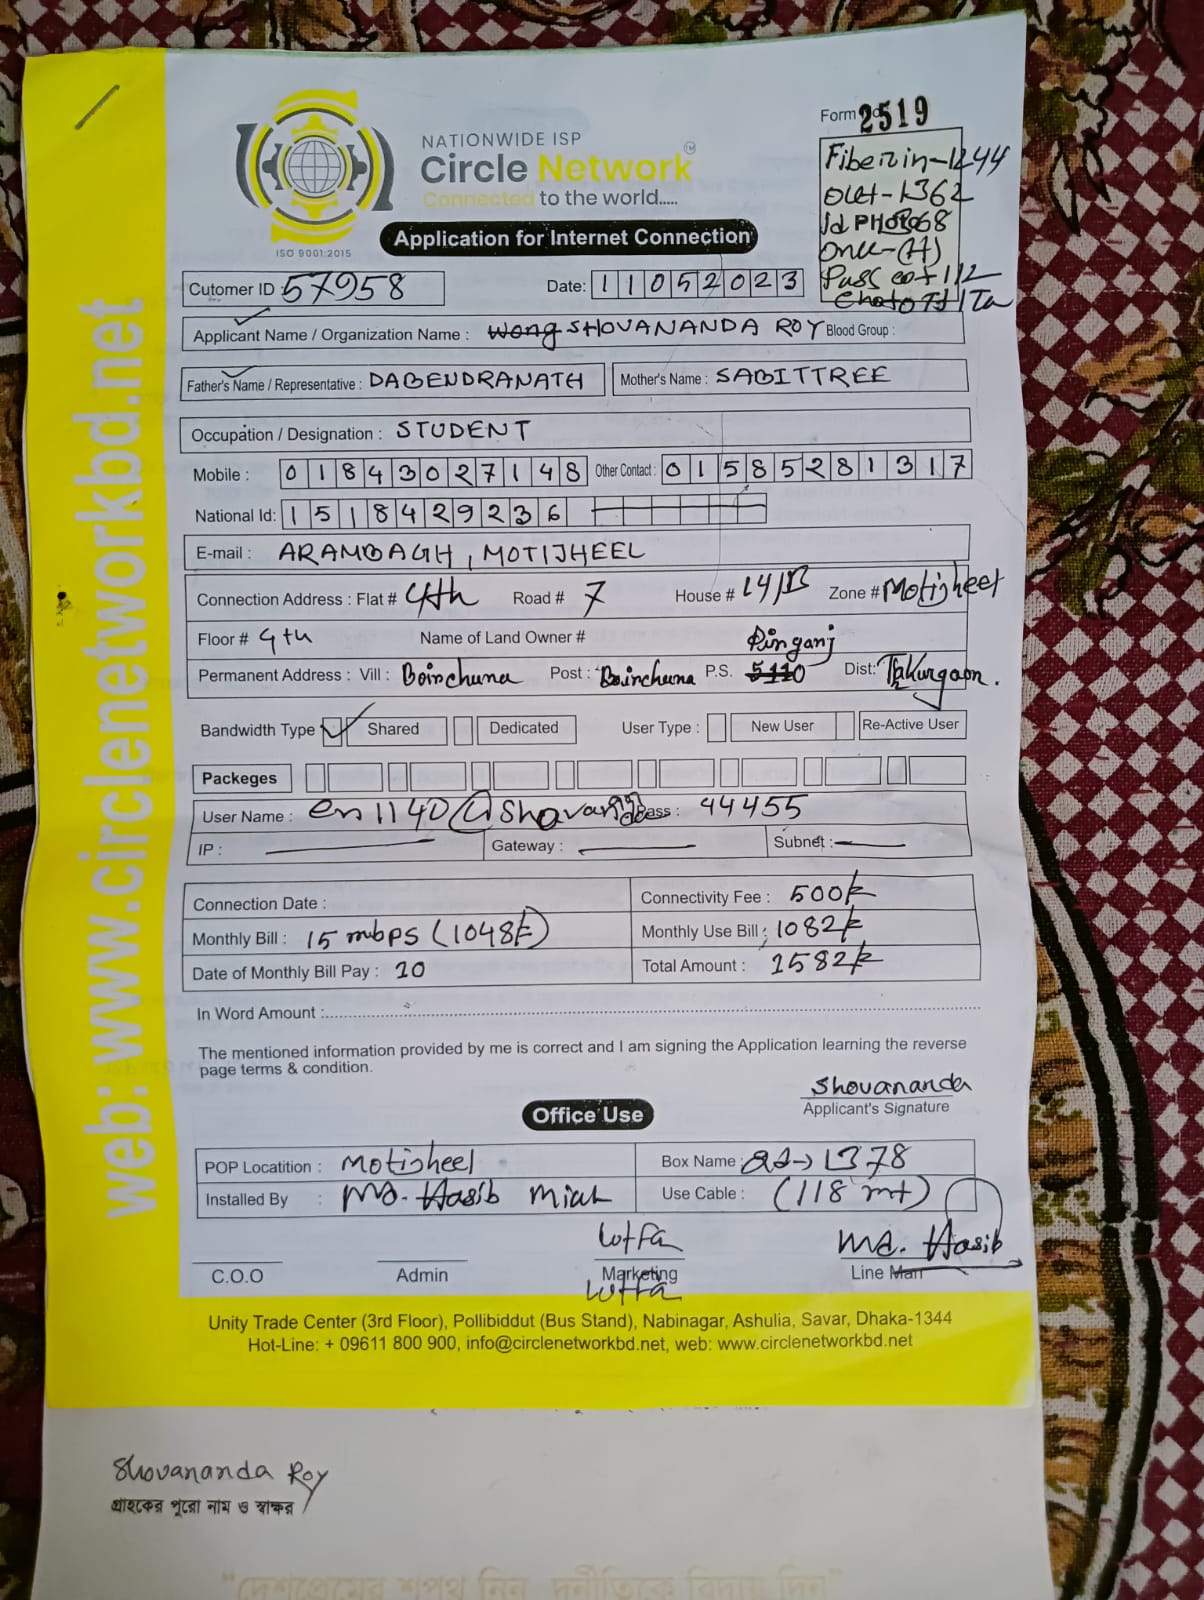 NATIONWIDE ISP
Circle Network TM
Connected to the world.....
ISO 9001:2015
Form 2519
Fiber in-1244
Out-1362
Id
Onu-(H)
Application for Internet Connection
Cutomer ID 57958
Date: 11052023
Applicant Name / Organization Name : SHOVANANDA ROY Blood Group :
Father's Name / Representative : DABENDRANATH Mother's Name : SABITTREE
Occupation / Designation : STUDENT
Mobile : 01843027148 Other Contact : 01585281317
National Id: 1518429236
E-mail : ARAMBAGH, MOTIJHEEL
Connection Address : Flat # 4th Road # 7 House # 14/B Zone # Motijheel
Floor # 4th Name of Land Owner #
Permanent Address : Vill : Boirchuna Post : Boirchuna P.S. 5110 Pirganj Dist: Thakurgaon.
Bandwidth Type Shared Dedicated User Type : New User Re-Active User
Packeges
User Name : Pass : 44455
IP : Gateway : Subnet :
Connection Date : Connectivity Fee : 500/-
Monthly Bill : 15 mbps (1048/-) Monthly Use Bill : 1082/-
Date of Monthly Bill Pay : 10 Total Amount : 1582/-
In Word Amount :
The mentioned information provided by me is correct and I am signing the Application learning the reverse
page terms & condition.
Shovananda
Applicant's Signature
Office Use
POP Locatition : Motijheel Box Name : 1378
Installed By : Md. Hasib Miah Use Cable : (118 mt)
Lutfa Md. Hasib
C.O.O Admin Marketing Line Man
Lutfa
Unity Trade Center (3rd Floor), Pollibiddut (Bus Stand), Nabinagar, Ashulia, Savar, Dhaka-1344
Hot-Line: + 09611 800 900, info@circlenetworkbd.net, web: www.circlenetworkbd.net
web: www.circlenetworkbd.net
Shovananda Roy
গ্রাহকের পুরো নাম ও স্বাক্ষর
"দেশপ্রেমের শপথ নিন, দুর্নীতিকে বিদায় দিন"